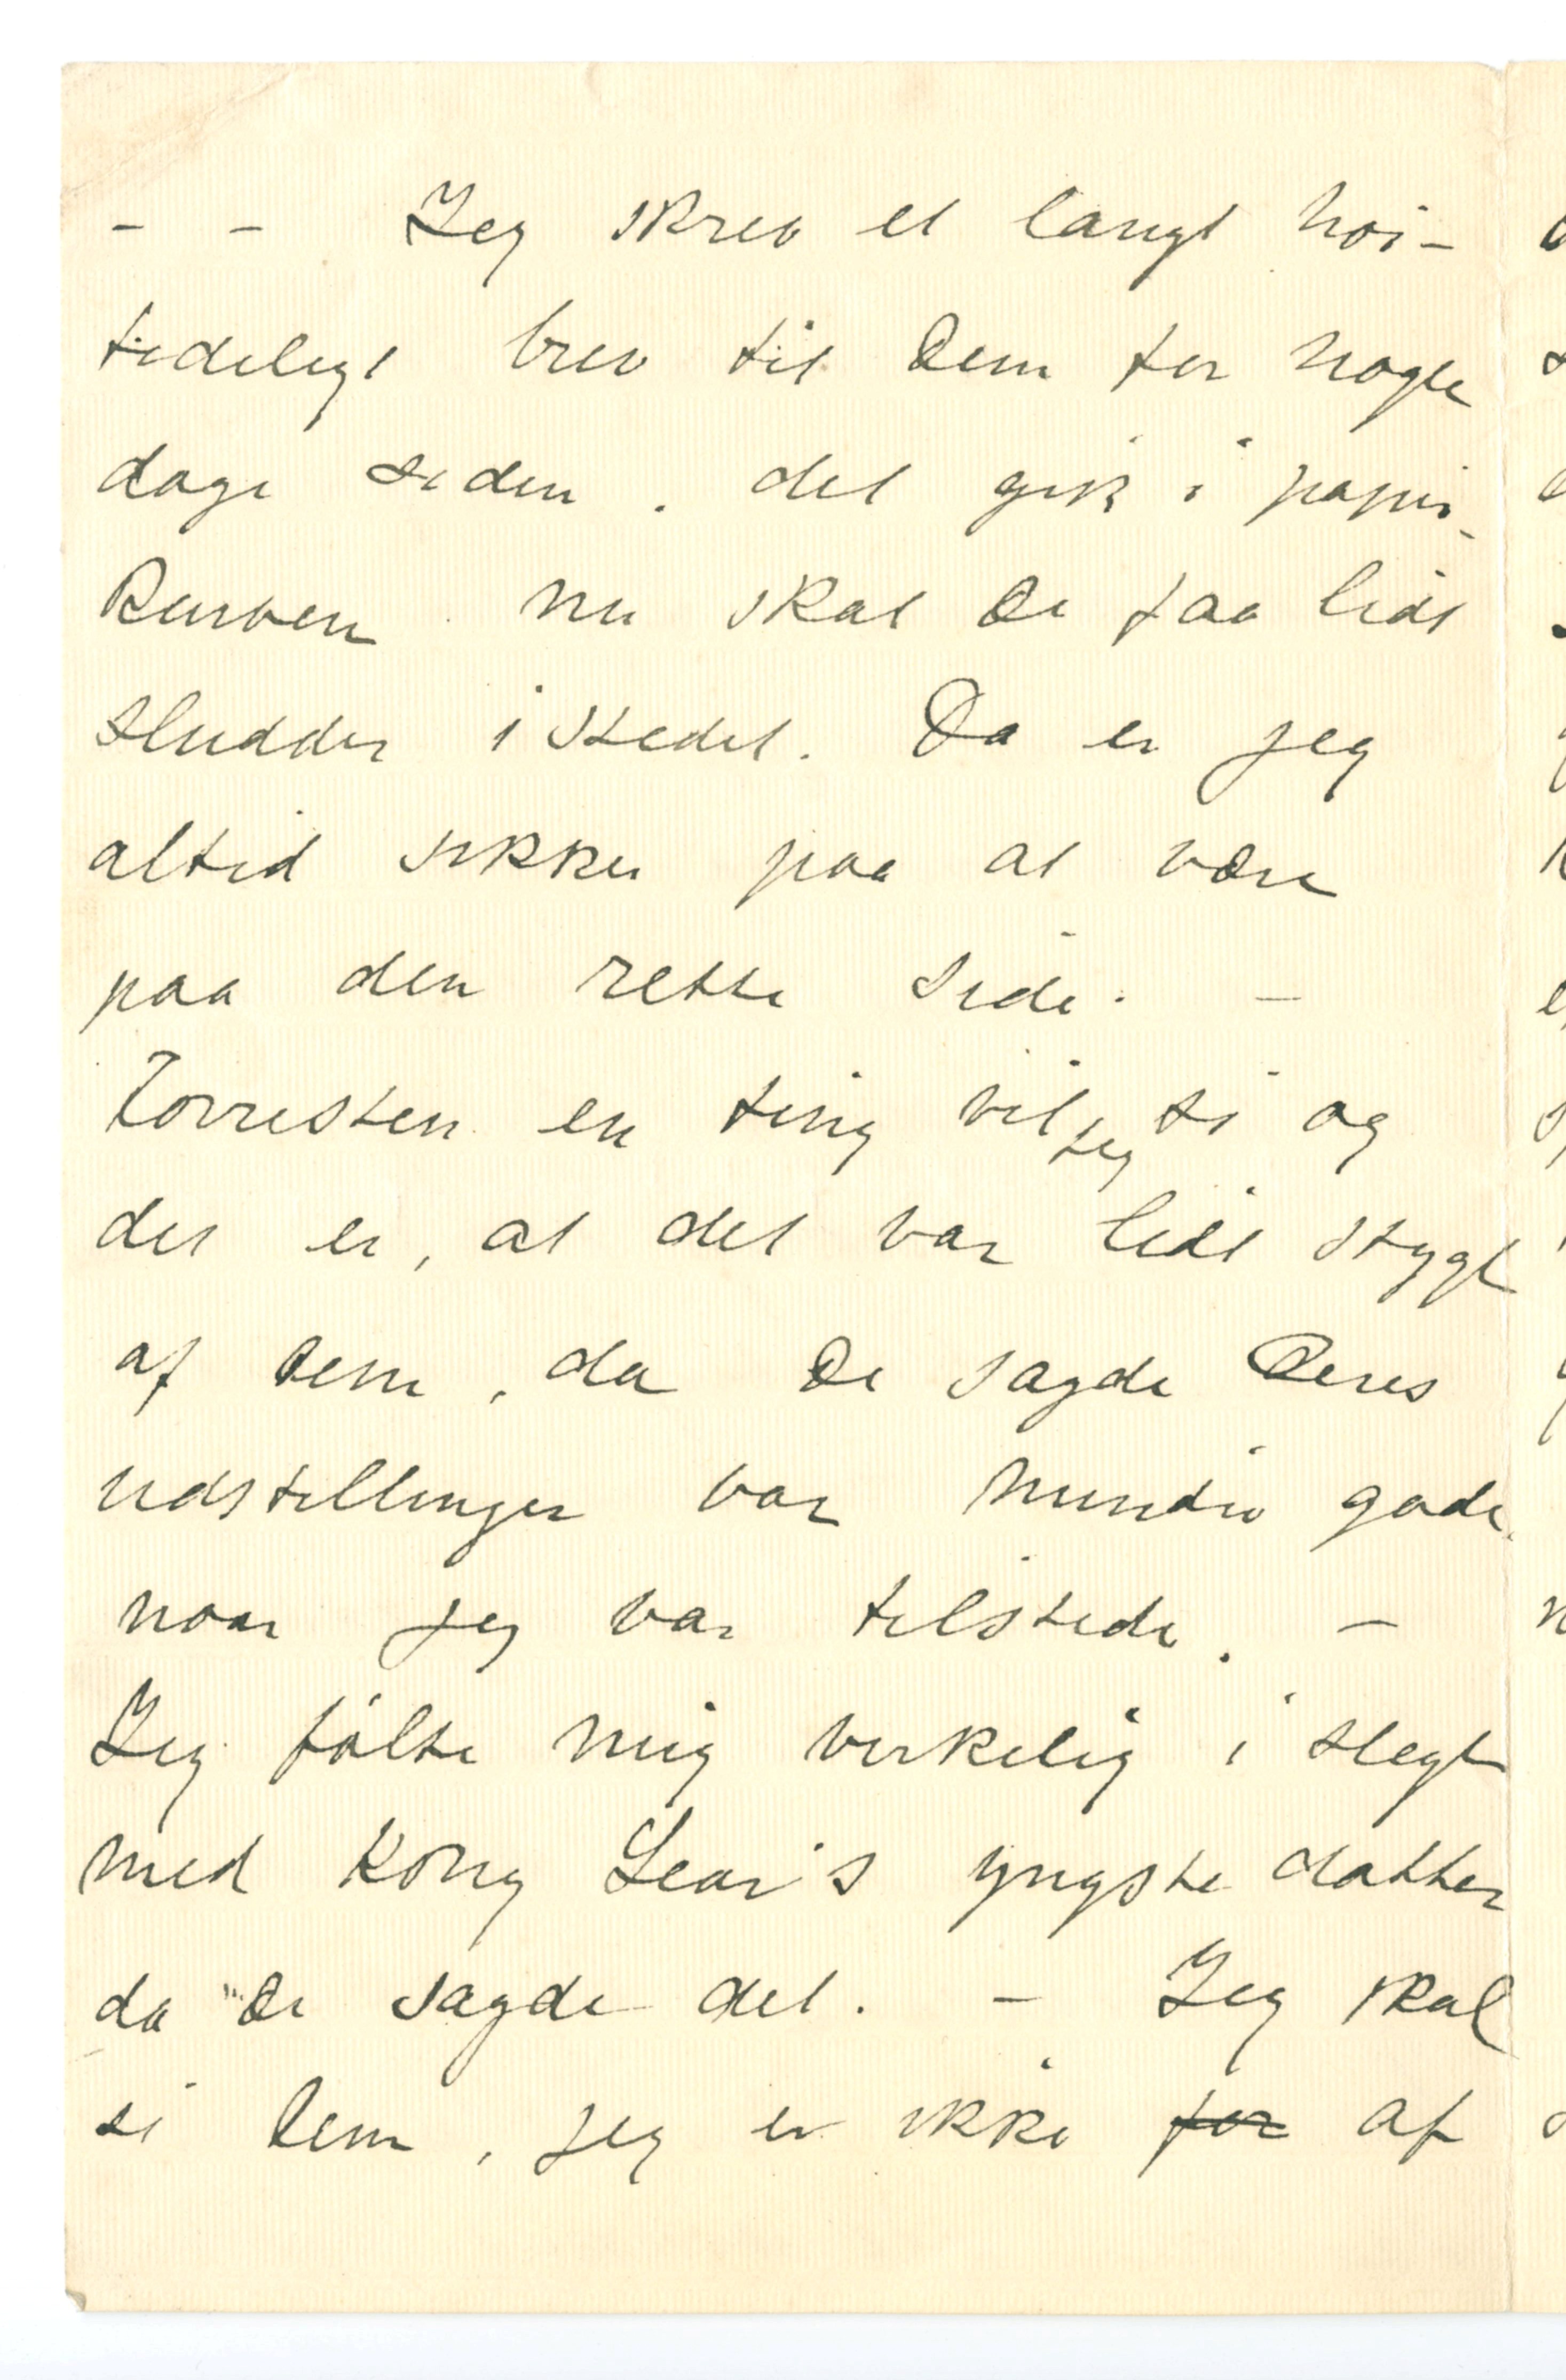 - - Jeg skrev et langt høi-
tideligt brev til Dem for nogle
dage siden. det gik i papir-
kurven. nu skal De faa lidt
sludder istedet. Da er jeg
altid sikker paa at være
paa den rette side. -
Forresten en ting vil jeg si og
det er, at det var lidt stygt
af Dem, da De sagde Deres
udstillinger var mindre gode
naar jeg var tilstede. -
Jeg følte mig virkelig i slegt
med Kong Lear's yngste datter
da De sagde det. - Jeg skal
si Dem, jeg er ikke for af